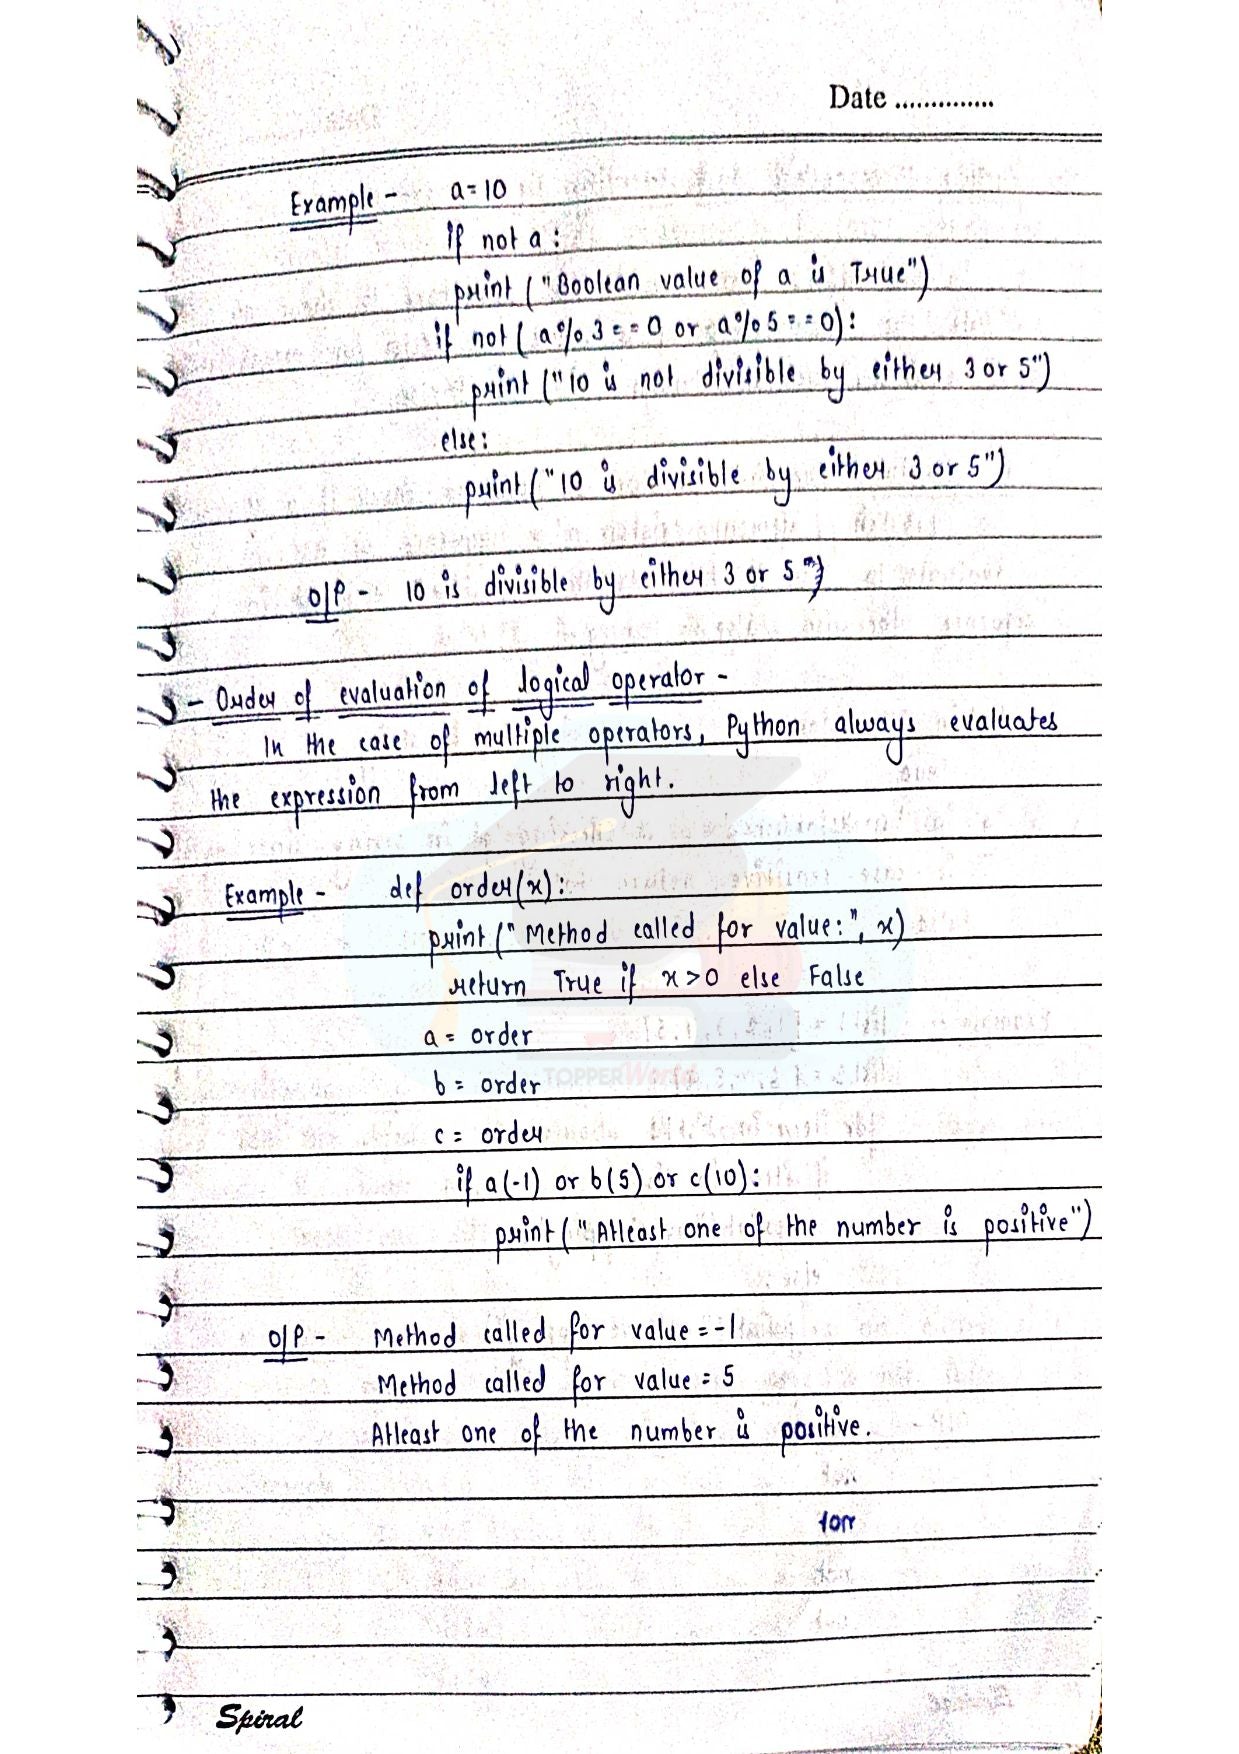 Date ..............
Example - a=10
if not a :
print ("Boolean value of a is True")
if not ( a%3==0 or a%5==0):
print ("10 is not divisible by either 3 or 5")
else:
print ("10 is divisible by either 3 or 5")
O/P - 10 is divisible by either 3 or 5
- Order of evaluation of logical operator -
In the case of multiple operators, Python always evaluates
the expression from left to right.
Example - def order(x):
print (" Method called for value:", x)
return True if x>0 else False
a = order
b = order
TOPPERWorld
c = order
if a(-1) or b(5) or c(10):
print (" Atleast one of the number is positive")
O/P - Method called for value = -1
Method called for value = 5
Atleast one of the number is positive.
Spiral